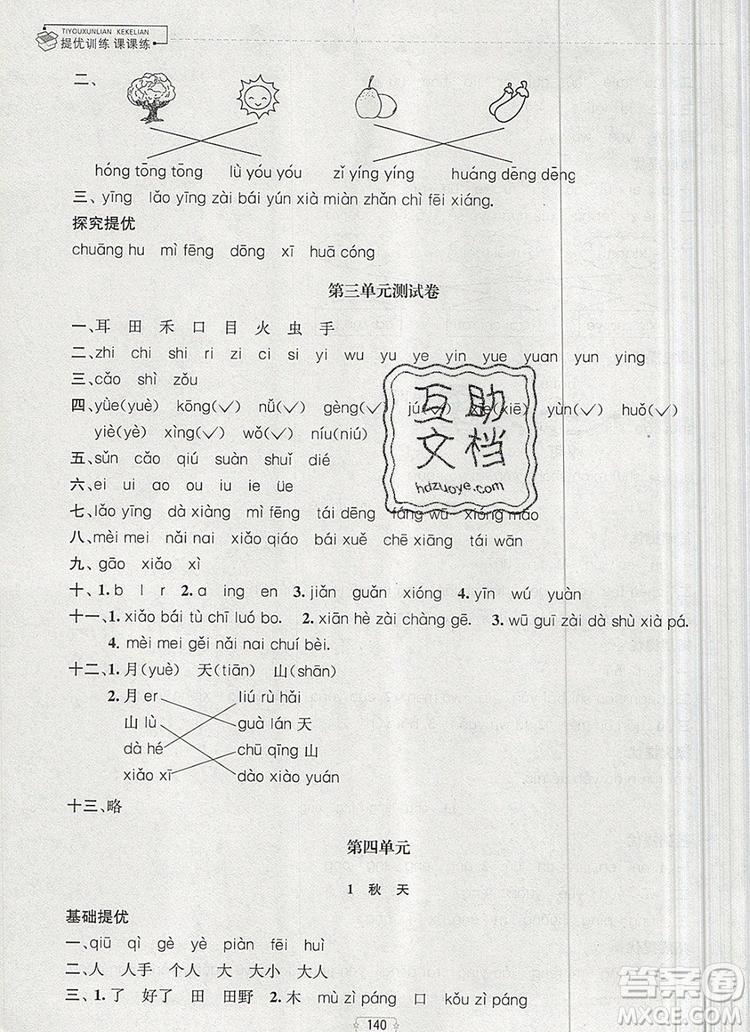 TIYOUXUNLIAN KEKELIAN
提优训练 课课练
二、
hóng tōng tōng lǜ yóu yóu zǐ yíng yíng huáng dēng dēng
三、yīng lǎo yīng zài bái yún xià miàn zhǎn chì fēi xiáng.
探究提优
chuāng hu mì fēng dōng xī huā cóng
第三单元测试卷
一、耳 田 禾 口 目 火 虫 手
二、zhi chi shi ri zi ci si yi wu yu ye yin yue yuan yun ying
三、cǎo shì zǒu
四、yùe(yuè) kōng(✓) nǚ(✓) gèng(✓) jú(✓) xīe(xiē) yùn(✓) huǒ(✓)
yiè(yè) xìng(✓) wǒ(✓) níu(niú)
五、sǔn cǎo qiú suàn shuǐ dié
六、ei ui ai ou iu ie üe
七、lǎo yīng dà xiàng mì fēng tái dēng fáng wū xióng māo
八、mèi mei nǎi nai qiú xié bái xuě chē xiāng tái wān
九、gāo xiǎo xì
十、1. b l r 2. a ing en 3. jiǎn guǎn xióng 4. yīn wú yuàn
十一、1. xiǎo bái tù chī luó bo. 2. xiān hè zài chàng gē. 3. wū guī zài dà shù xià pá.
4. mèi mei gěi nǎi nai chuí bèi.
十二、1. 月(yuè) 天(tiān) 山(shān)
2. 月 er liú rù hǎi
山 lù guà lán 天
dà hé chū qīng 山
xiǎo xī dào xiào yuán
十三、略
第四单元
1 秋 天
基础提优
一、qiū qì gè yè piàn fēi huì
二、人 人手 个人 大 大山 大人
三、1. 了 好了 田 田野 2. 木 mù zì páng 口 kǒu zì páng
140
互助
文档
hdzuoye.com
答案圈
MXQE.COM